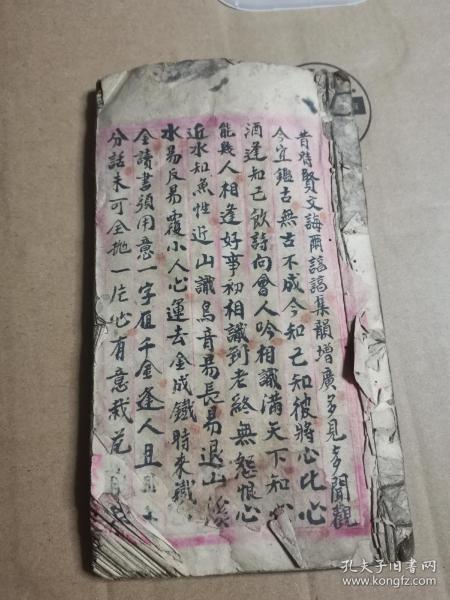 昔時賢文誨爾諄諄集韻增廣多見多聞觀
今宜鑑古無古不成今知己知彼將心比心
酒逢知己飲詩向會人吟相識滿天下知心
能幾人相逢好事初相識到老終無怨恨心
近水知魚性近山識鳥音易長易退山溪
水易反易覆小人心運去金成鐵時來鐵
金讀書須用意一字值千金逢人且
分話未可全抛一片心有意栽花
孔夫子旧书网
www.kongfz.com